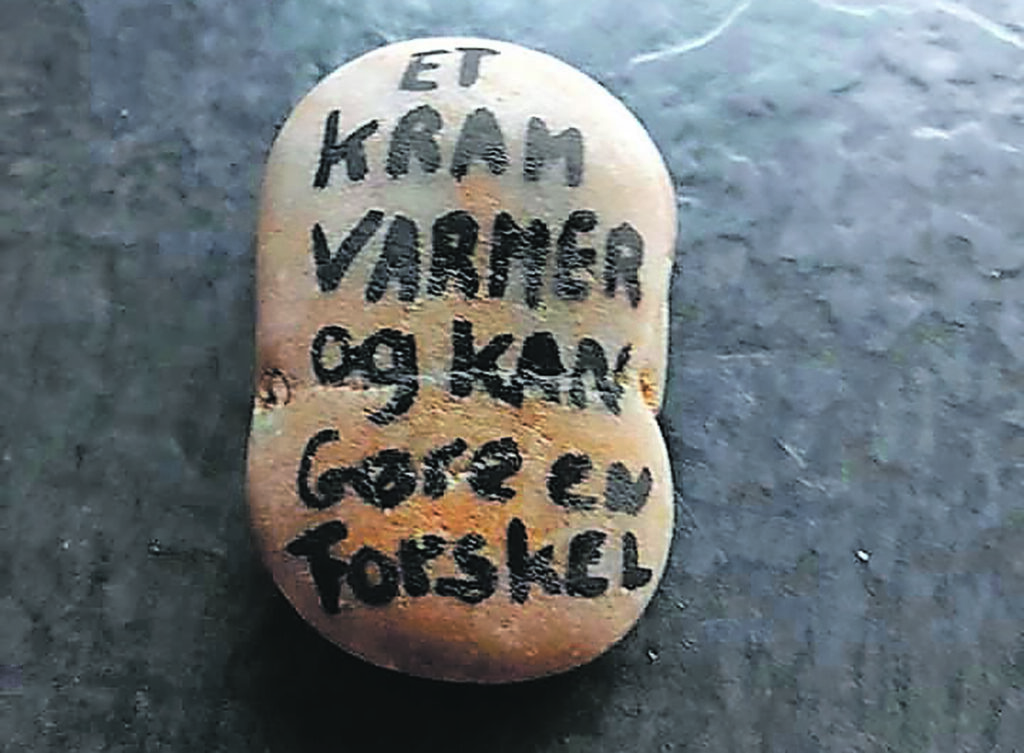 ET
KRAM
VARMER
og KAN
Gøre en
Forskel